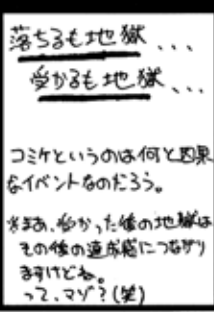 落ちるも地獄、、、
受かるも地獄、、、
コミケというのは何と因果
なイベントなのだろう。
※まあ、受かった後の地獄は
その後の達成感につながり
ますけどね。
って、マゾ?(笑)